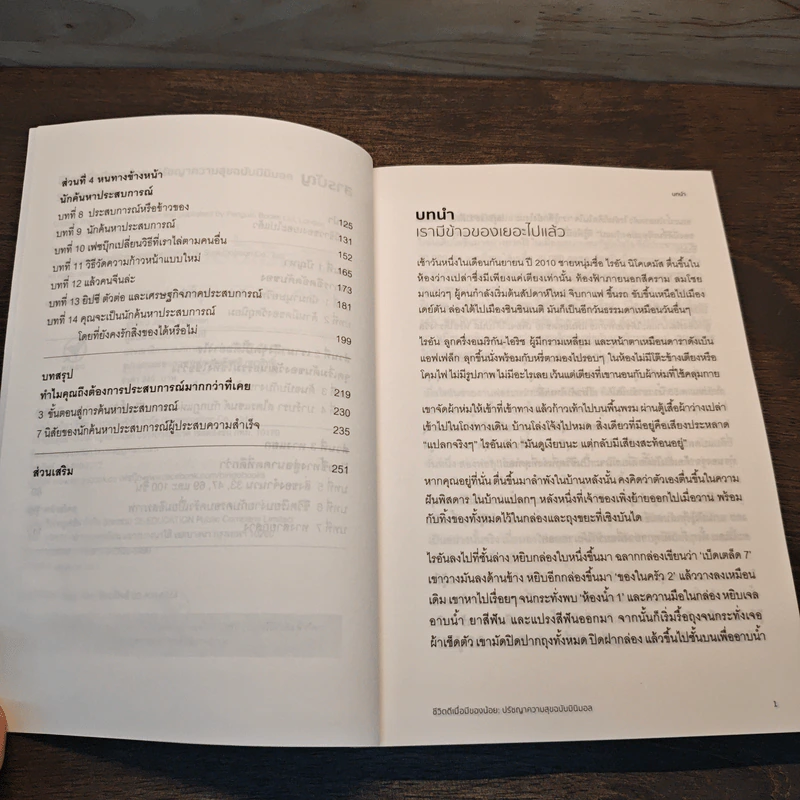 ส่วนที่ 4 หนทางข้างหน้า
นักค้นหาประสบการณ์
บทที่ 8 ประสบการณ์หรือข้าวของ 125
บทที่ 9 นักค้นหาประสบการณ์ 131
บทที่ 10 เฟซบุ๊กเปลี่ยนวิธีที่เราไล่ตามคนอื่น 152
บทที่ 11 วิธีวัดความก้าวหน้าแบบใหม่ 165
บทที่ 12 แล้วคนจีนล่ะ 173
บทที่ 13 ยิปซี ตัวต่อ และเศรษฐกิจภาคประสบการณ์ 181
บทที่ 14 คุณจะเป็นนักค้นหาประสบการณ์
โดยที่ยังคงรักสิ่งของได้หรือไม่ 199
บทสรุป
ทำไมคุณถึงต้องการประสบการณ์มากกว่าที่เคย 219
3 ขั้นตอนสู่การค้นหาประสบการณ์ 230
7 นิสัยของนักค้นหาประสบการณ์ผู้ประสบความสำเร็จ 235
ส่วนเสริม 251
บทนำ
บทนำ
เรามีข้าวของเยอะไปแล้ว
เช้าวันหนึ่งในเดือนกันยายน ปี 2010 ชายหนุ่มชื่อ ไรอัน นิโคเดมัส ตื่นขึ้นใน
ห้องว่างเปล่าซึ่งมีเพียงแค่เตียงเท่านั้น ท้องฟ้าภายนอกสีคราม ลมโชย
มาแผ่วๆ ผู้คนกำลังเริ่มต้นสัปดาห์ใหม่ จิบกาแฟ ขึ้นรถ ขับขึ้นเหนือไปเมือง
เดย์ตัน ล่องใต้ไปเมืองซินซินเนติ มันก็เป็นอีกวันธรรมดาเหมือนวันอื่นๆ
ไรอัน ลูกครึ่งอเมริกัน-ไอริช ผู้มีกรามเหลี่ยม และหน้าตาเหมือนดาราดังเบ็น
แอฟเฟล็ก ลุกขึ้นนั่งพร้อมกับหรี่ตามองไปรอบๆ ในห้องไม่มีโต๊ะข้างเตียงหรือ
โคมไฟ ไม่มีรูปภาพ ไม่มีอะไรเลย เว้นแต่เตียงที่เขานอนกับผ้าห่มที่ใช้คลุมกาย
เขาจัดผ้าห่มให้เข้าที่เข้าทาง แล้วก้าวเท้าไปบนพื้นพรม ผ่านตู้เสื้อผ้าว่างเปล่า
เข้าไปในโถงทางเดิน บ้านโล่งโจ้งไปหมด สิ่งเดียวที่มีอยู่คือเสียงประหลาด
"แปลกจริงๆ" ไรอันเล่า "มันดูเงียบนะ แต่กลับมีเสียงสะท้อนอยู่"
หากคุณอยู่ที่นั่น ตื่นขึ้นมาลำพังในบ้านหลังนั้น คงคิดว่าตัวเองตื่นขึ้นในความ
ฝันพิสดาร ในบ้านแปลกๆ หลังหนึ่งที่เจ้าของเพิ่งย้ายออกไปเมื่อวาน พร้อม
กับทิ้งของทั้งหมดไว้ในกล่องและถุงขยะที่เชิงบันได
ไรอันลงไปที่ชั้นล่าง หยิบกล่องใบหนึ่งขึ้นมา ฉลากกล่องเขียนว่า 'เบ็ดเตล็ด 7'
เขาวางมันลงด้านข้าง หยิบอีกกล่องขึ้นมา 'ของในครัว 2' แล้ววางลงเหมือน
เดิม เขาหาไปเรื่อยๆ จนกระทั่งพบ 'ห้องน้ำ 1' และควานมือในกล่อง หยิบเจล
อาบน้ำ ยาสีฟัน และแปรงสีฟันออกมา จากนั้นก็เริ่มรื้อถุงจนกระทั่งเจอ
ผ้าเช็ดตัว เขามัดปิดปากถุงทั้งหมด ปิดฝากล่อง แล้วขึ้นไปชั้นบนเพื่ออาบน้ำ
ชีวิตดีเมื่อมีของน้อย: ปรัชญาความสุขฉบับมินิมอล 1